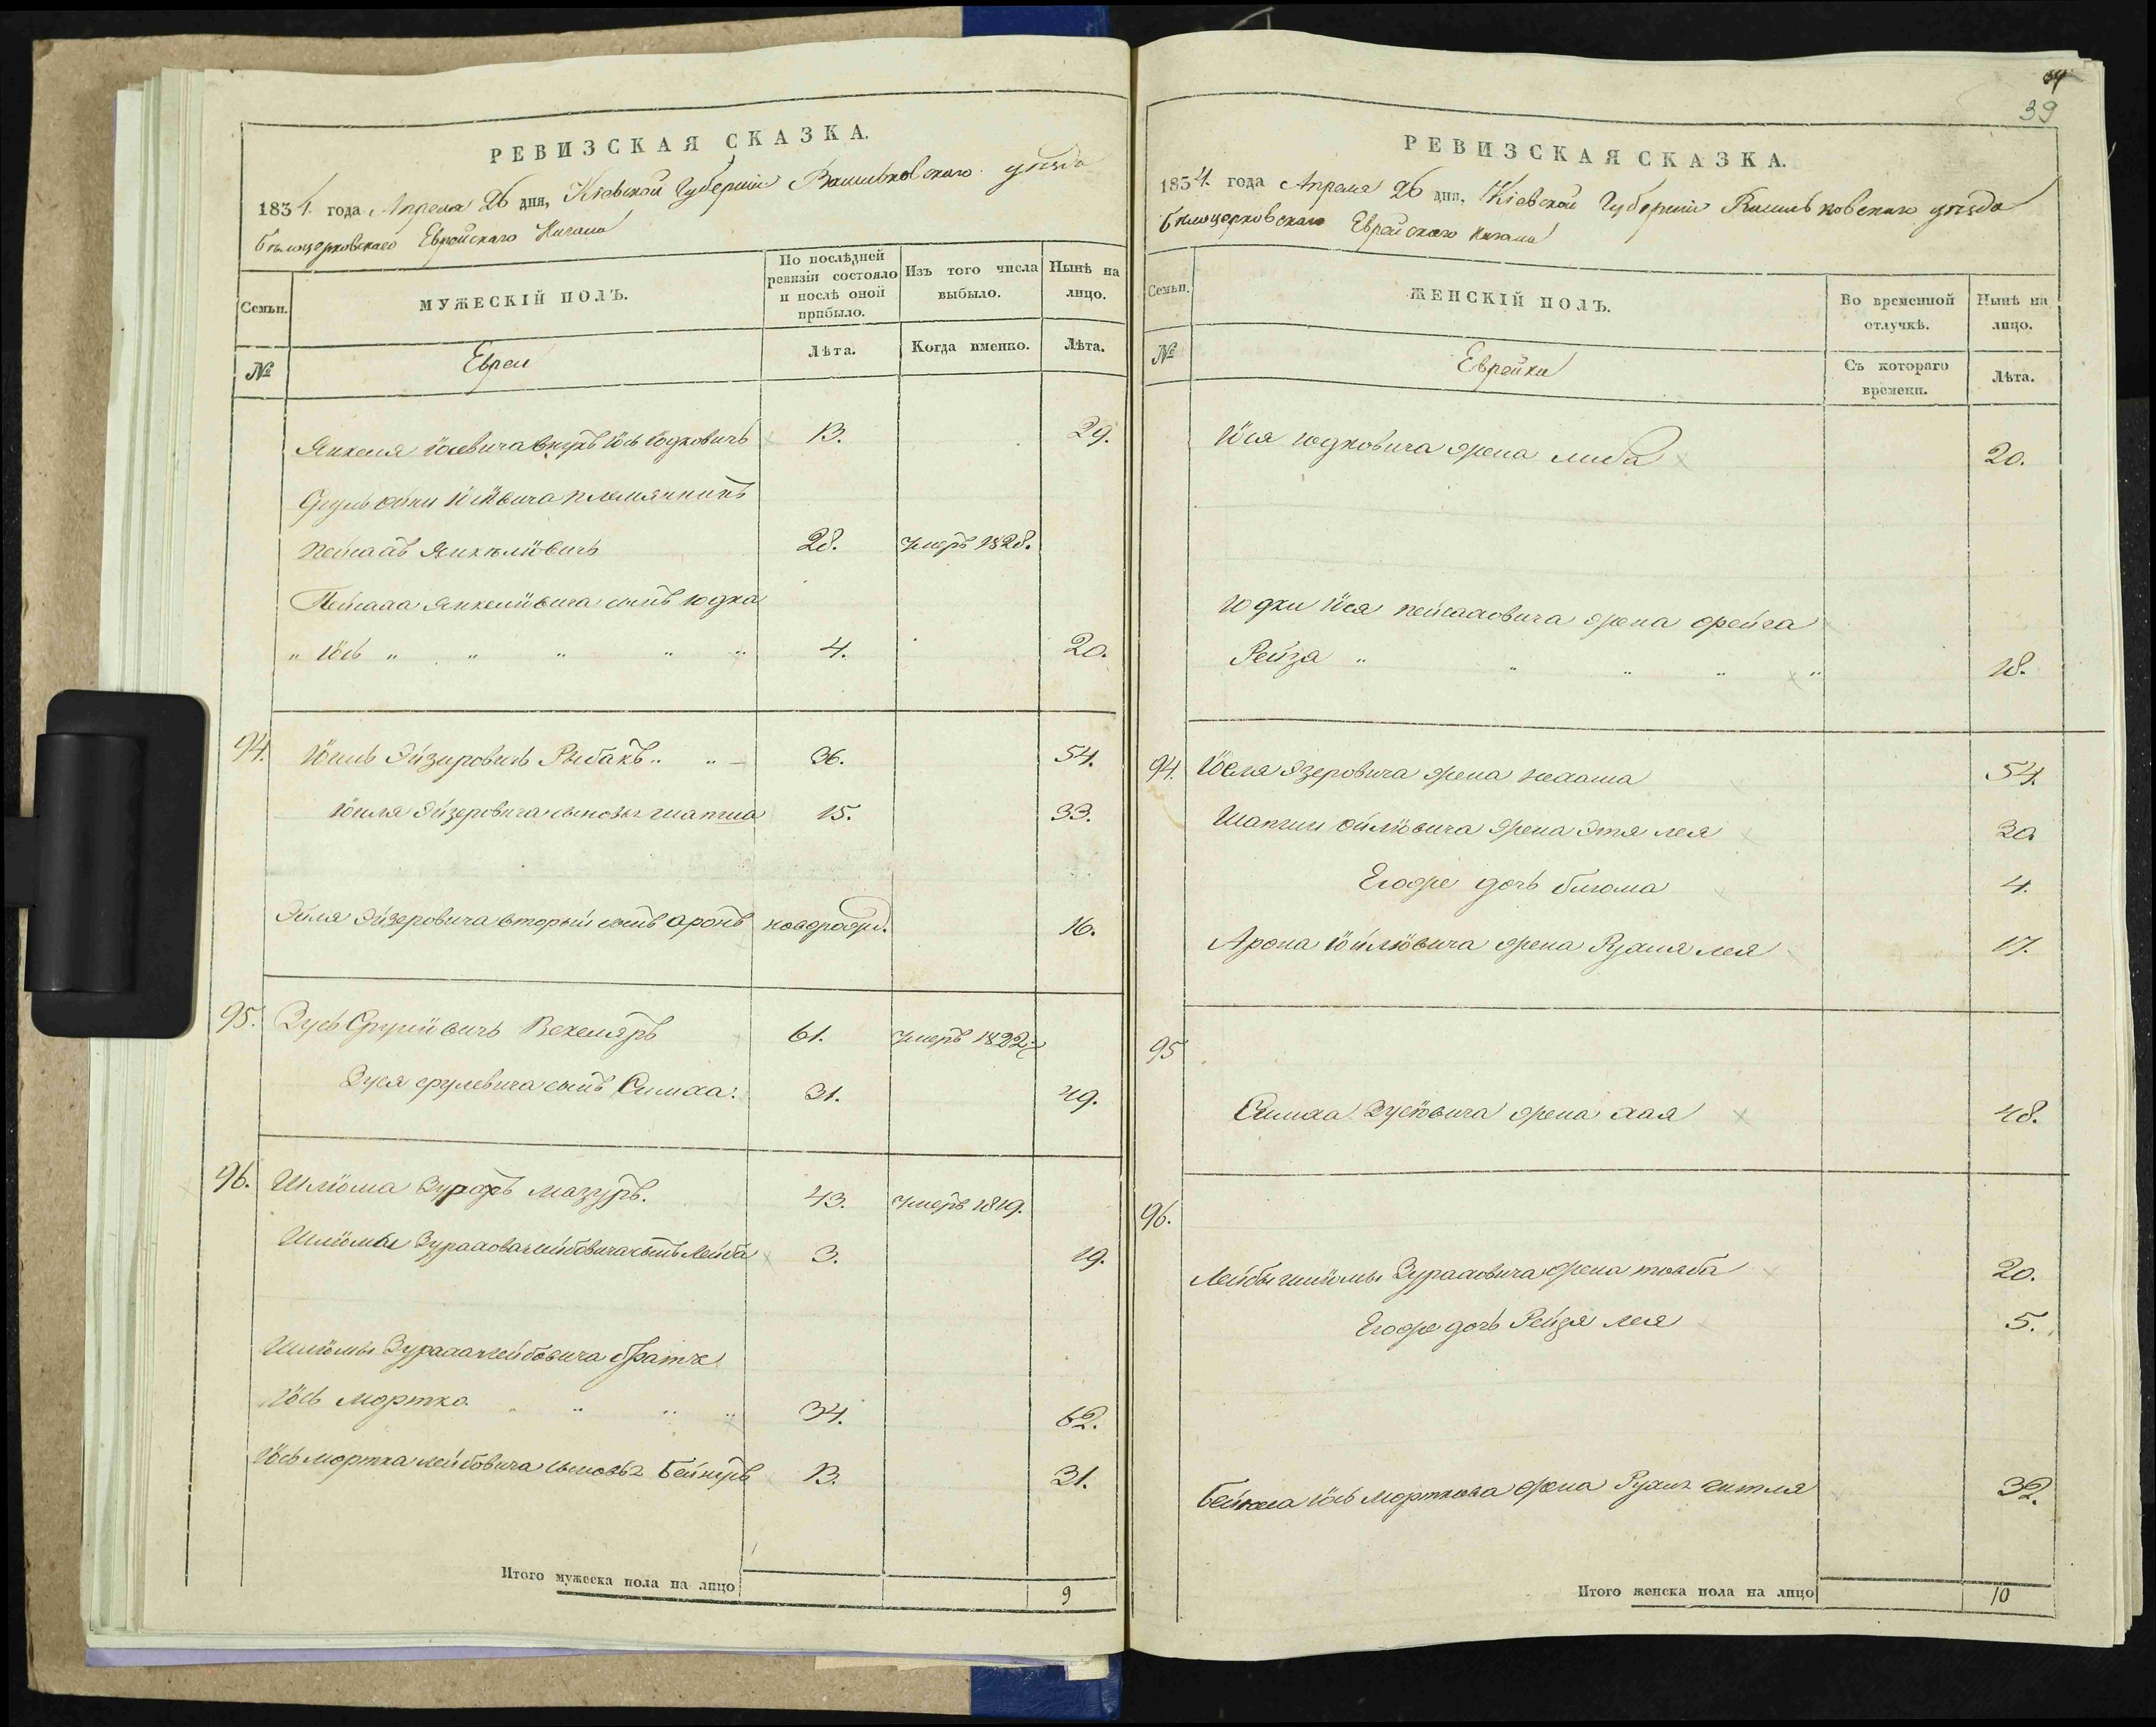 РЕВИЗСКАЯ СКАЗКА.
1834. года Апреля 26 дня, Кіевской Губерніи Васильковского уезда
Белоцерковскаго Еврейскаго Кагала
Семьи. МУЖЕСКІЙ ПОЛЪ. По послѣдней ревизіи состояло и послѣ оной прибыло. Изъ того числа выбыло. Нынѣ на лицо.
№ Евреи Лѣта. Когда именно. Лѣта.
Янкеля Іосевича внукъ Іось Юдковичъ 13. 29.
племянникъ
Пейсахъ Янкелiовичъ 28. Умеръ 1828.
Пейсаха Янкелiовича сынъ Юдка
" Іось " " " " " 4. 20.
94. Эйзировичъ Рыбакъ " " 36. 54.
Эйзеровича сыновья Шапша 15. 33.
Эйзеровича вторый сынъ Аронъ новорожд. 16.
95. Зусь Сруліовичъ 61. Умеръ 1822.
Зуся Срулевича сынъ Симха. 31. 49.
96. Шліома Зурахъ Мазуръ. 43. Умеръ 1819.
Шліомы Зурахова Лейбовича сынъ Лейба 3. 19.
Шліомы Зураха Лейбовича братъ
Іось Мортко " " " 34. 62.
Іось Мортка Лейбовича сыновья 13. 31.
Итого мужеска пола на лицо 9
39
РЕВИЗСКАЯ СКАЗКА.
1834. года Апреля 26 дня, Кіевской Губерніи Васильковскаго уезда
Белоцерковскаго Еврейскаго Кагала
Семьи. ЖЕНСКІЙ ПОЛЪ. Во временной отлучкѣ. Нынѣ на лицо.
№ Еврейки Съ котораго времени. Лѣта.
Іося Юдковича жена Либа 20.
Юдки Іося Пейсаховича жена Фрейга
Рейза " " " " " 18.
94. Эзеровича жена Нехама 54.
Шапши жена Этя Лея 30.
Егоже дочь 4.
Арона жена Рухля Лея 17.
95
Симха Зусiовича жена Хая 48.
96.
Лейбы Шліомы Зураховича жена Товба 20.
Егоже дочь Рейзя Лея 5.
ІосьМорткова жена Гитля 32.
Итого женска пола на лицо 10